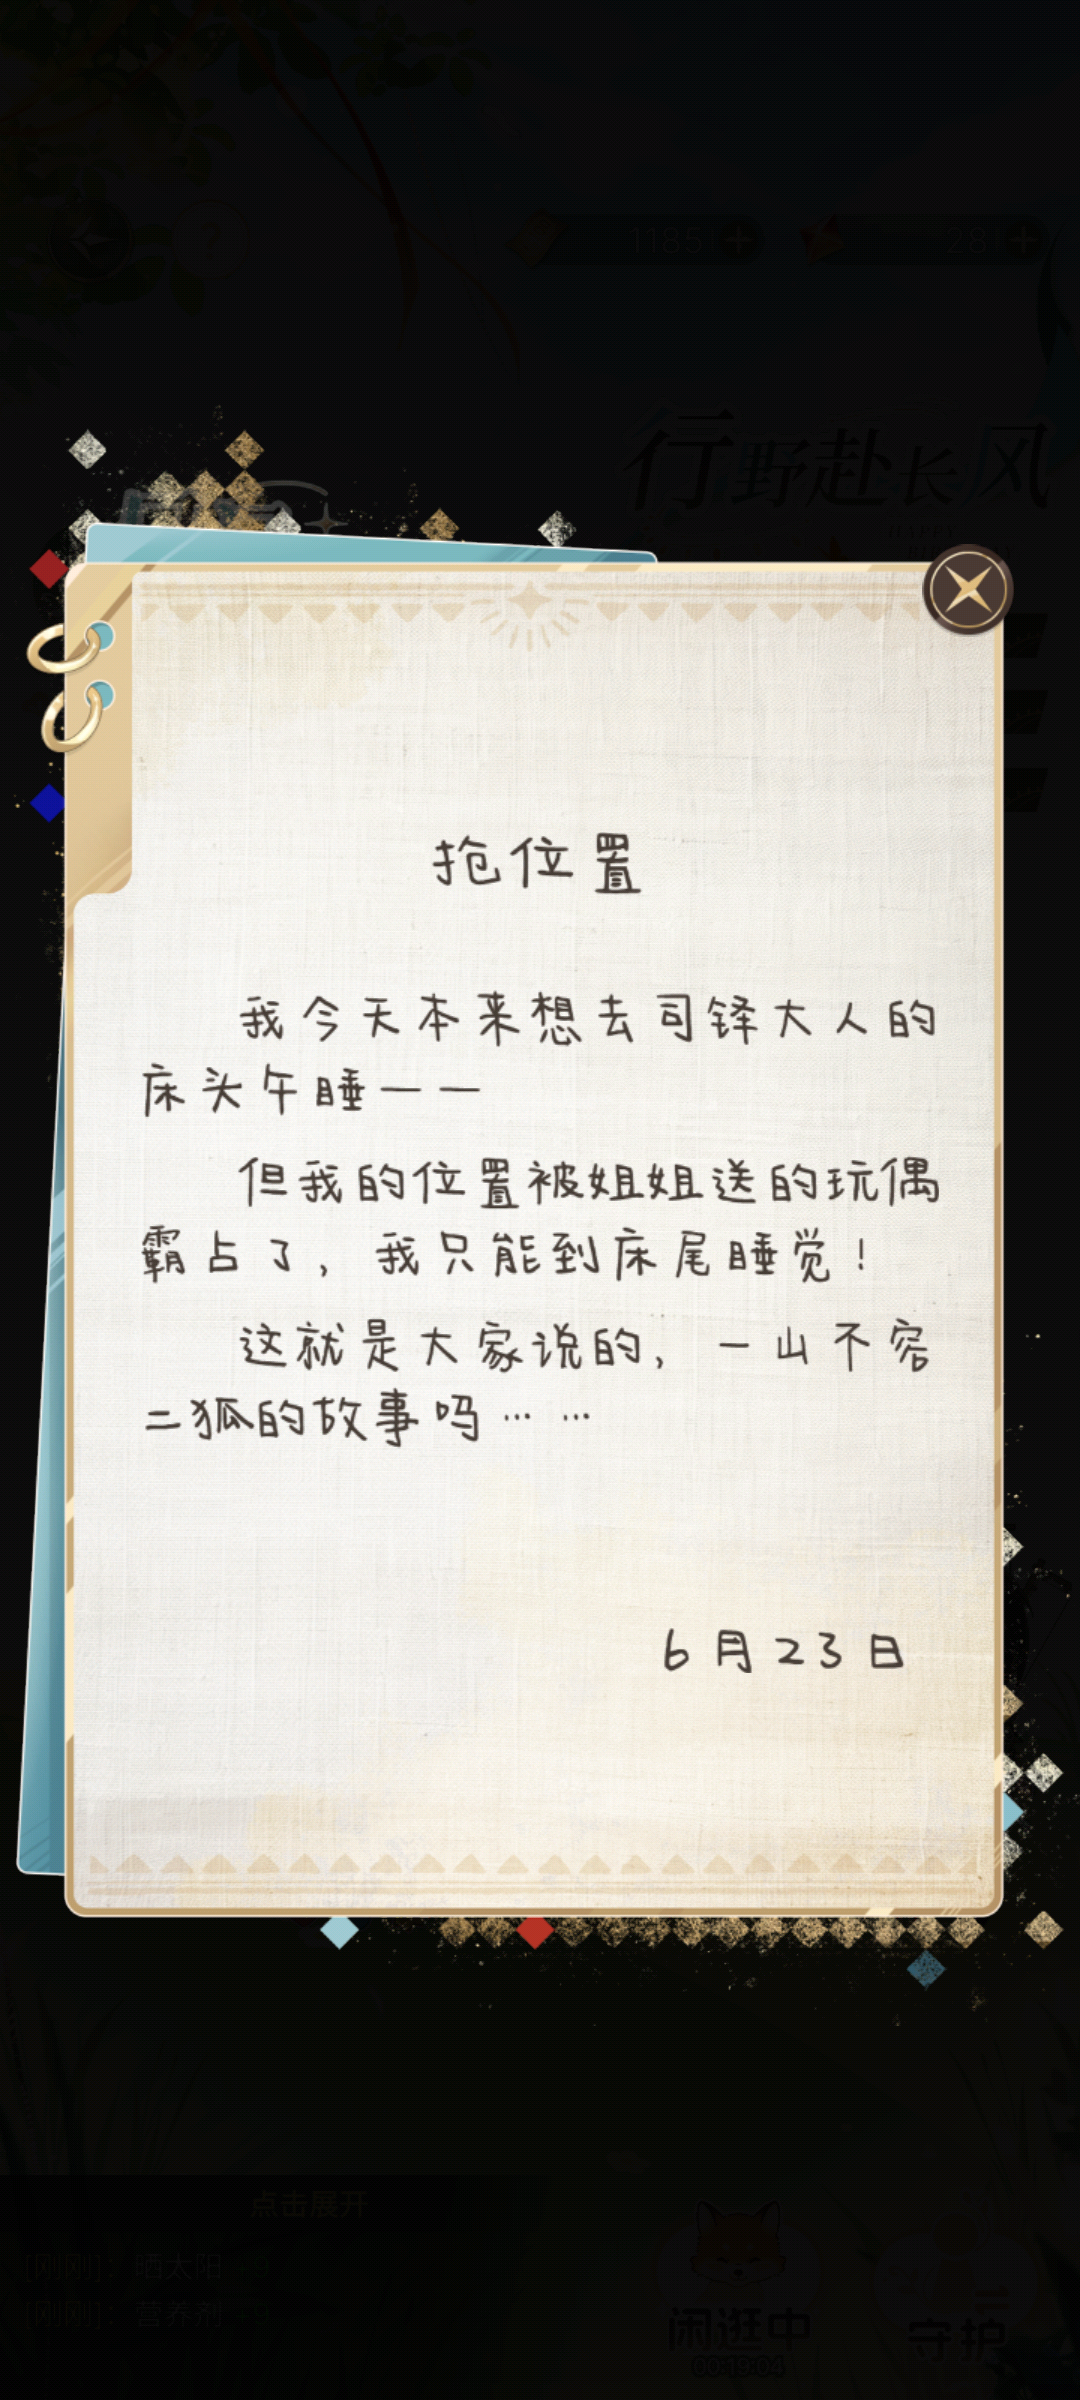 1185
28
行野赴长风
抢位置
我今天本来想去司铎大人的
床头午睡——
但我的位置被姐姐送的玩偶
霸占了，我只能到床尾睡觉！
这就是大家说的，一山不容
二狐的故事吗……
6月23日
点击展开
[刚刚]：晒太阳
[刚刚]：营养剂
闲逛中
守护
00:19:04